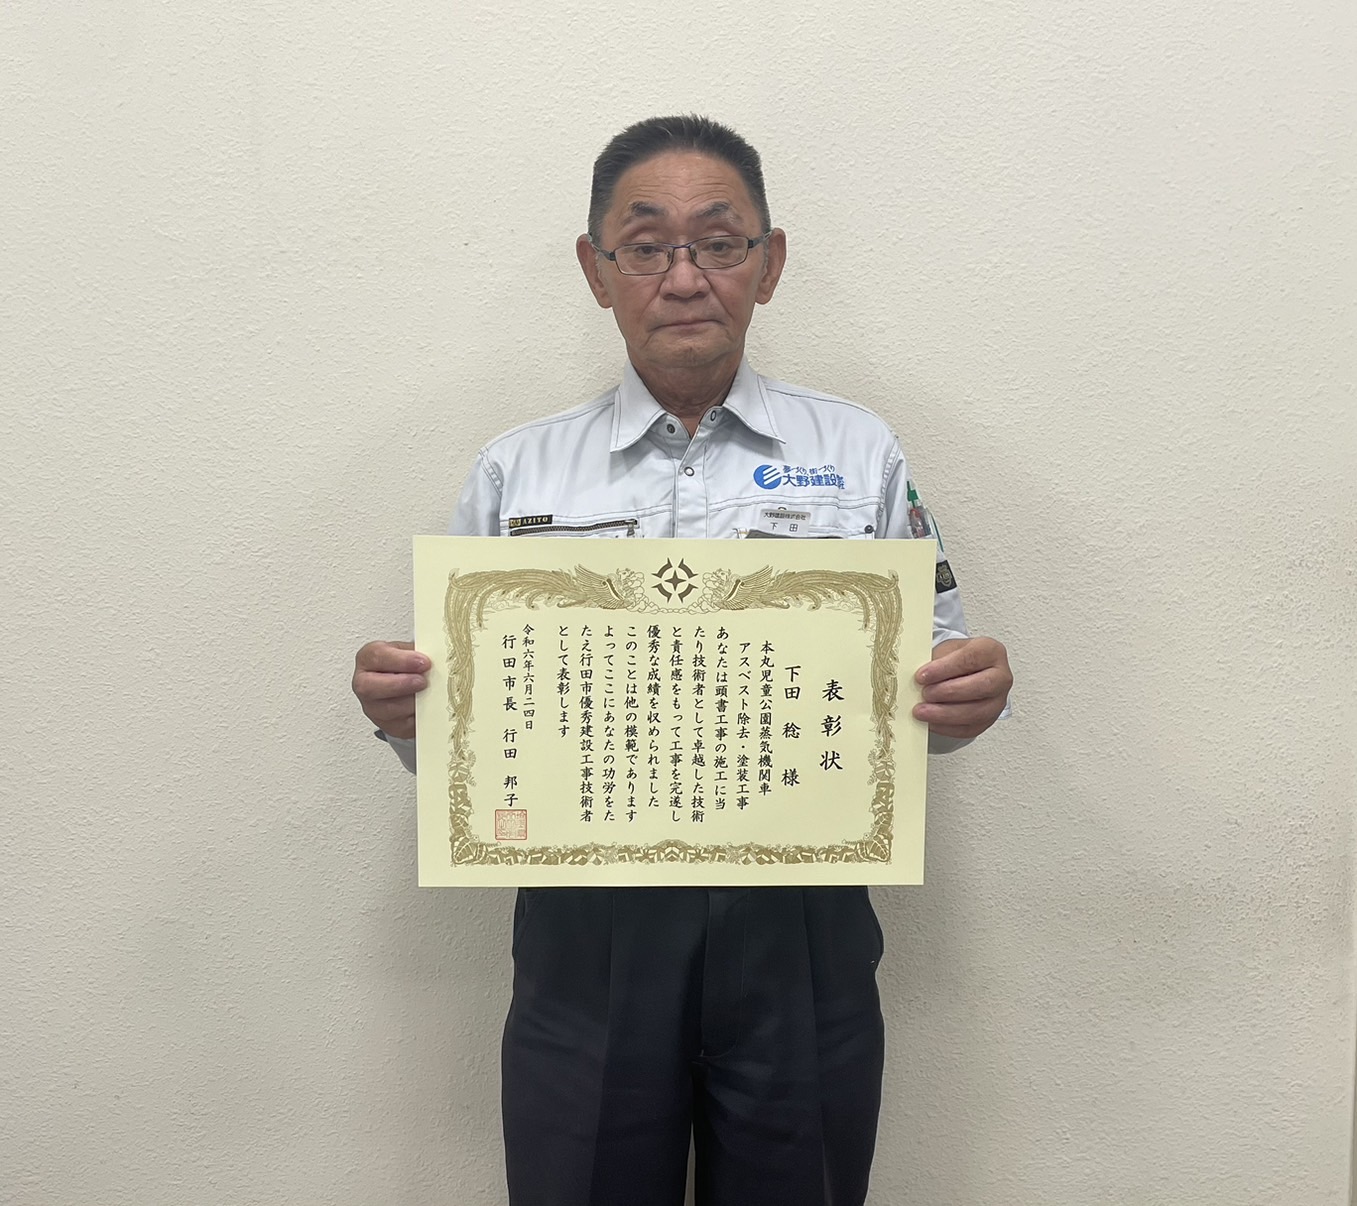 夢づくり、街づくり
大野建設㈱
AZITO
大野建設株式会社
下田
表彰状
下田 稔 様
本丸児童公園蒸気機関車
アスベスト除去・塗装工事
あなたは頭書工事の施工に当
たり技術者として卓越した技術
と責任感をもって工事を完遂し
優秀な成績を収められました
このことは他の模範であります
よってここにあなたの功労をた
たえ行田市優秀建設工事技術者
として表彰します
令和六年六月二四日
行田市長 行田 邦子